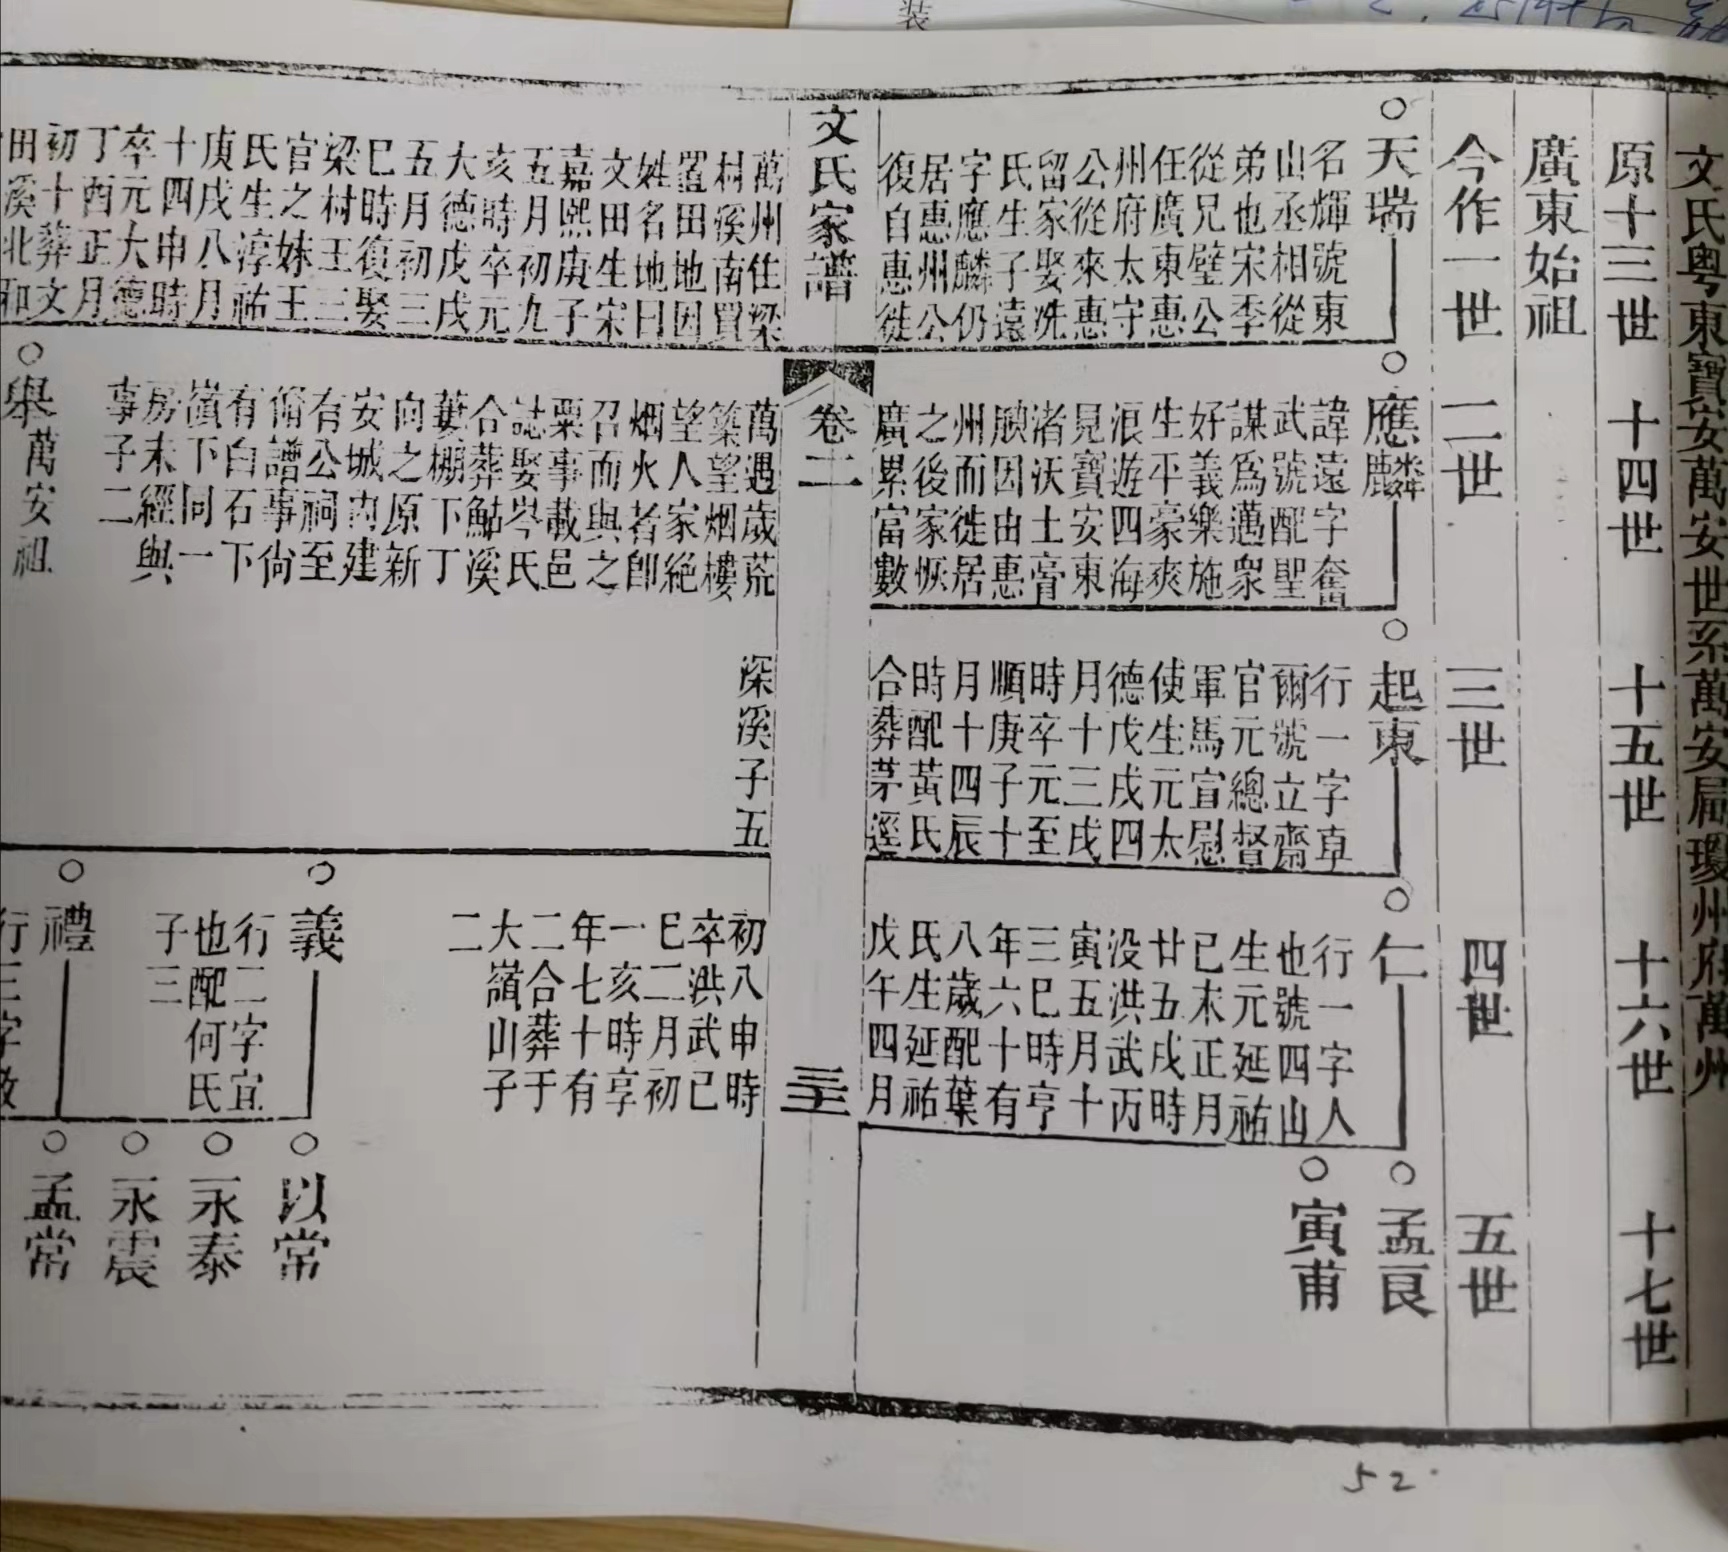 装
文氏粤東寶安萬安世系萬安屬瓊州府萬州
原十三世
十四世
十五世
十六世
十七世
廣東始祖
今作一世
二世
三世
四世
五世
○天瑞
名輝號東
山丞相從
弟也宋季
從兄璧公
任廣東惠
州府太守
公從來惠
留家娶冼
氏生子遠
字應麟仍
居惠州公
復自惠徙
○應麟
諱遠字奮
武號配聖
謀爲邁衆
好義樂施
生平豪爽
浪遊四海
見寶安東
渚沃土膏
腴因由惠
州而徙居
之後家恢
廣累富數
○起東
行一字卓
爾號立齋
官元總督
軍馬宣慰
使生元太
德戊戌四
月十三戌
時卒元至
順庚子十
月十四辰
時配黃氏
合葬茅逕
○仁
行一字人
也號四山
生元延祐
已未正月
廿五戌時
没洪武丙
寅五月十
三巳時亨
年六十有
八歲配葉
氏生延祐
戊午四月
○孟良
○寅甫
文氏家譜
卷二
三十三
萬州住梁
村溪南買
置田地因
姓名地曰
文田生宋
嘉熙庚子
五月初九
亥時卒元
大德戊戌
五月初三
巳時復娶
梁村王三
官之妹王
氏生淳祐
庚戌八月
十四申時
卒元大德
丁酉正月
初十葬文
田溪北和
萬遇歲荒
築望烟樓
望人家絶
烟火者卽
召而與之
粟事載邑
誌娶岑氏
合葬鮎溪
葽棚下丁
向之原新
安城内建
有公祠至
脩譜事尙
有白石下
嶺下同一
房未經與
事子二
○舉
萬安祖
深溪子五
初八申時
卒洪武已
巳二月初
一亥時享
年七十有
二合葬于
大嶺山子
二
○義
行二字宜
也配何氏
子三
○禮
行三字敬
○以常
○永泰
○永震
○孟常
52